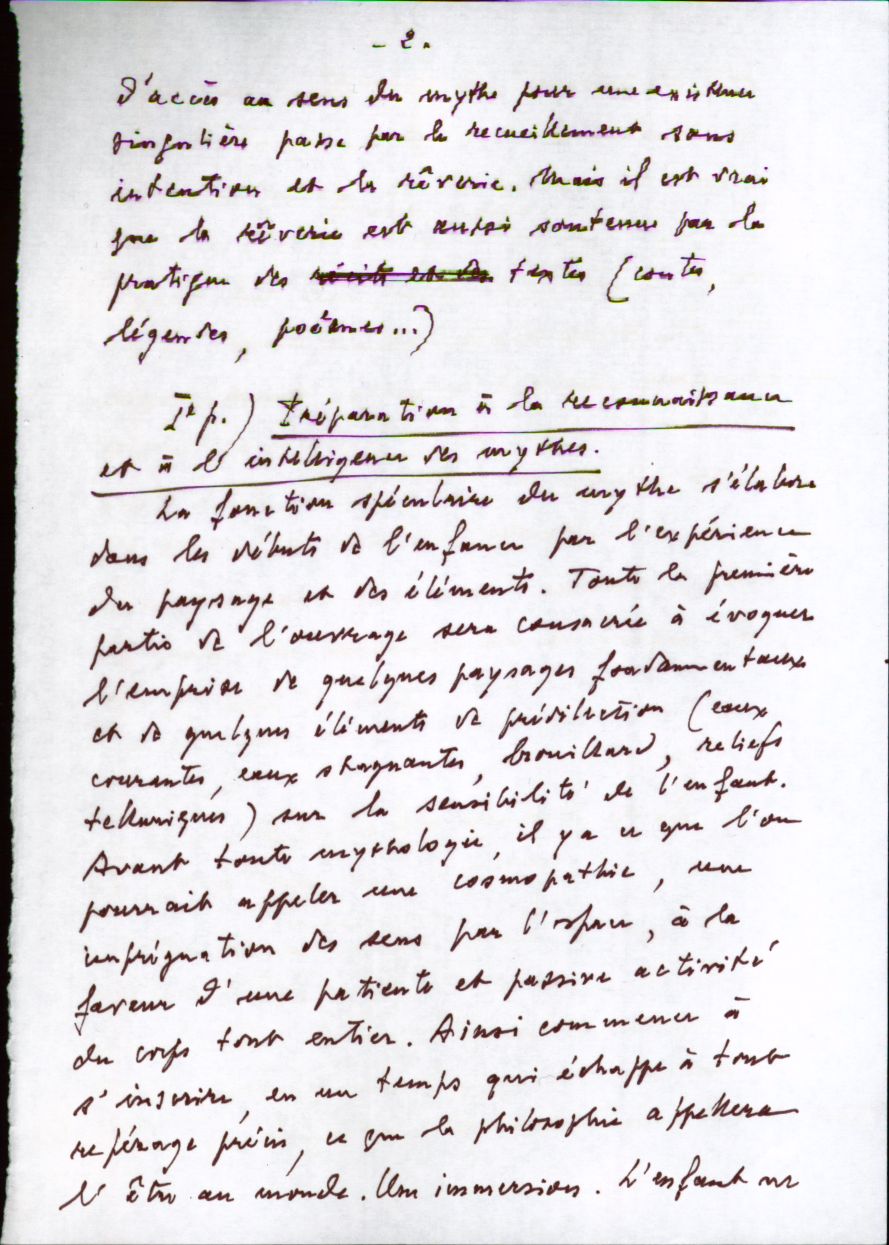 - 2.
d'accès au sens du mythe pour une existence
singulière passe par le recueillement sans
intention et la rêverie. Mais il est vrai
que la rêverie est aussi soutenue par la
pratique des récits et des textes (contes,
légendes, poèmes...)
Iè p.) Préparation à la reconnaissance
et à l'intelligence des mythes.
La fonction spéculaire du mythe s'élabore
dans les débuts de l'enfance par l'expérience
du paysage et des éléments. Toute la première
partie de l'ouvrage sera consacrée à évoquer
l'emprise de quelques paysages fondamentaux
et de quelques éléments de prédilection (eaux
courantes, eaux stagnantes, brouillard, reliefs
telluriques) sur la sensibilité de l'enfant.
Avant toute mythologie, il y a ce que l'on
pourrait appeler une cosmopathie, une
imprégnation des sens par l'espace, à la
faveur d'une patiente et passive activité
du corps tout entier. Ainsi commence à
s'inscrire, en un temps qui échappe à tout
repérage précis, ce que la philosophie appellera
l'être au monde. Une immersion. L'enfant ne